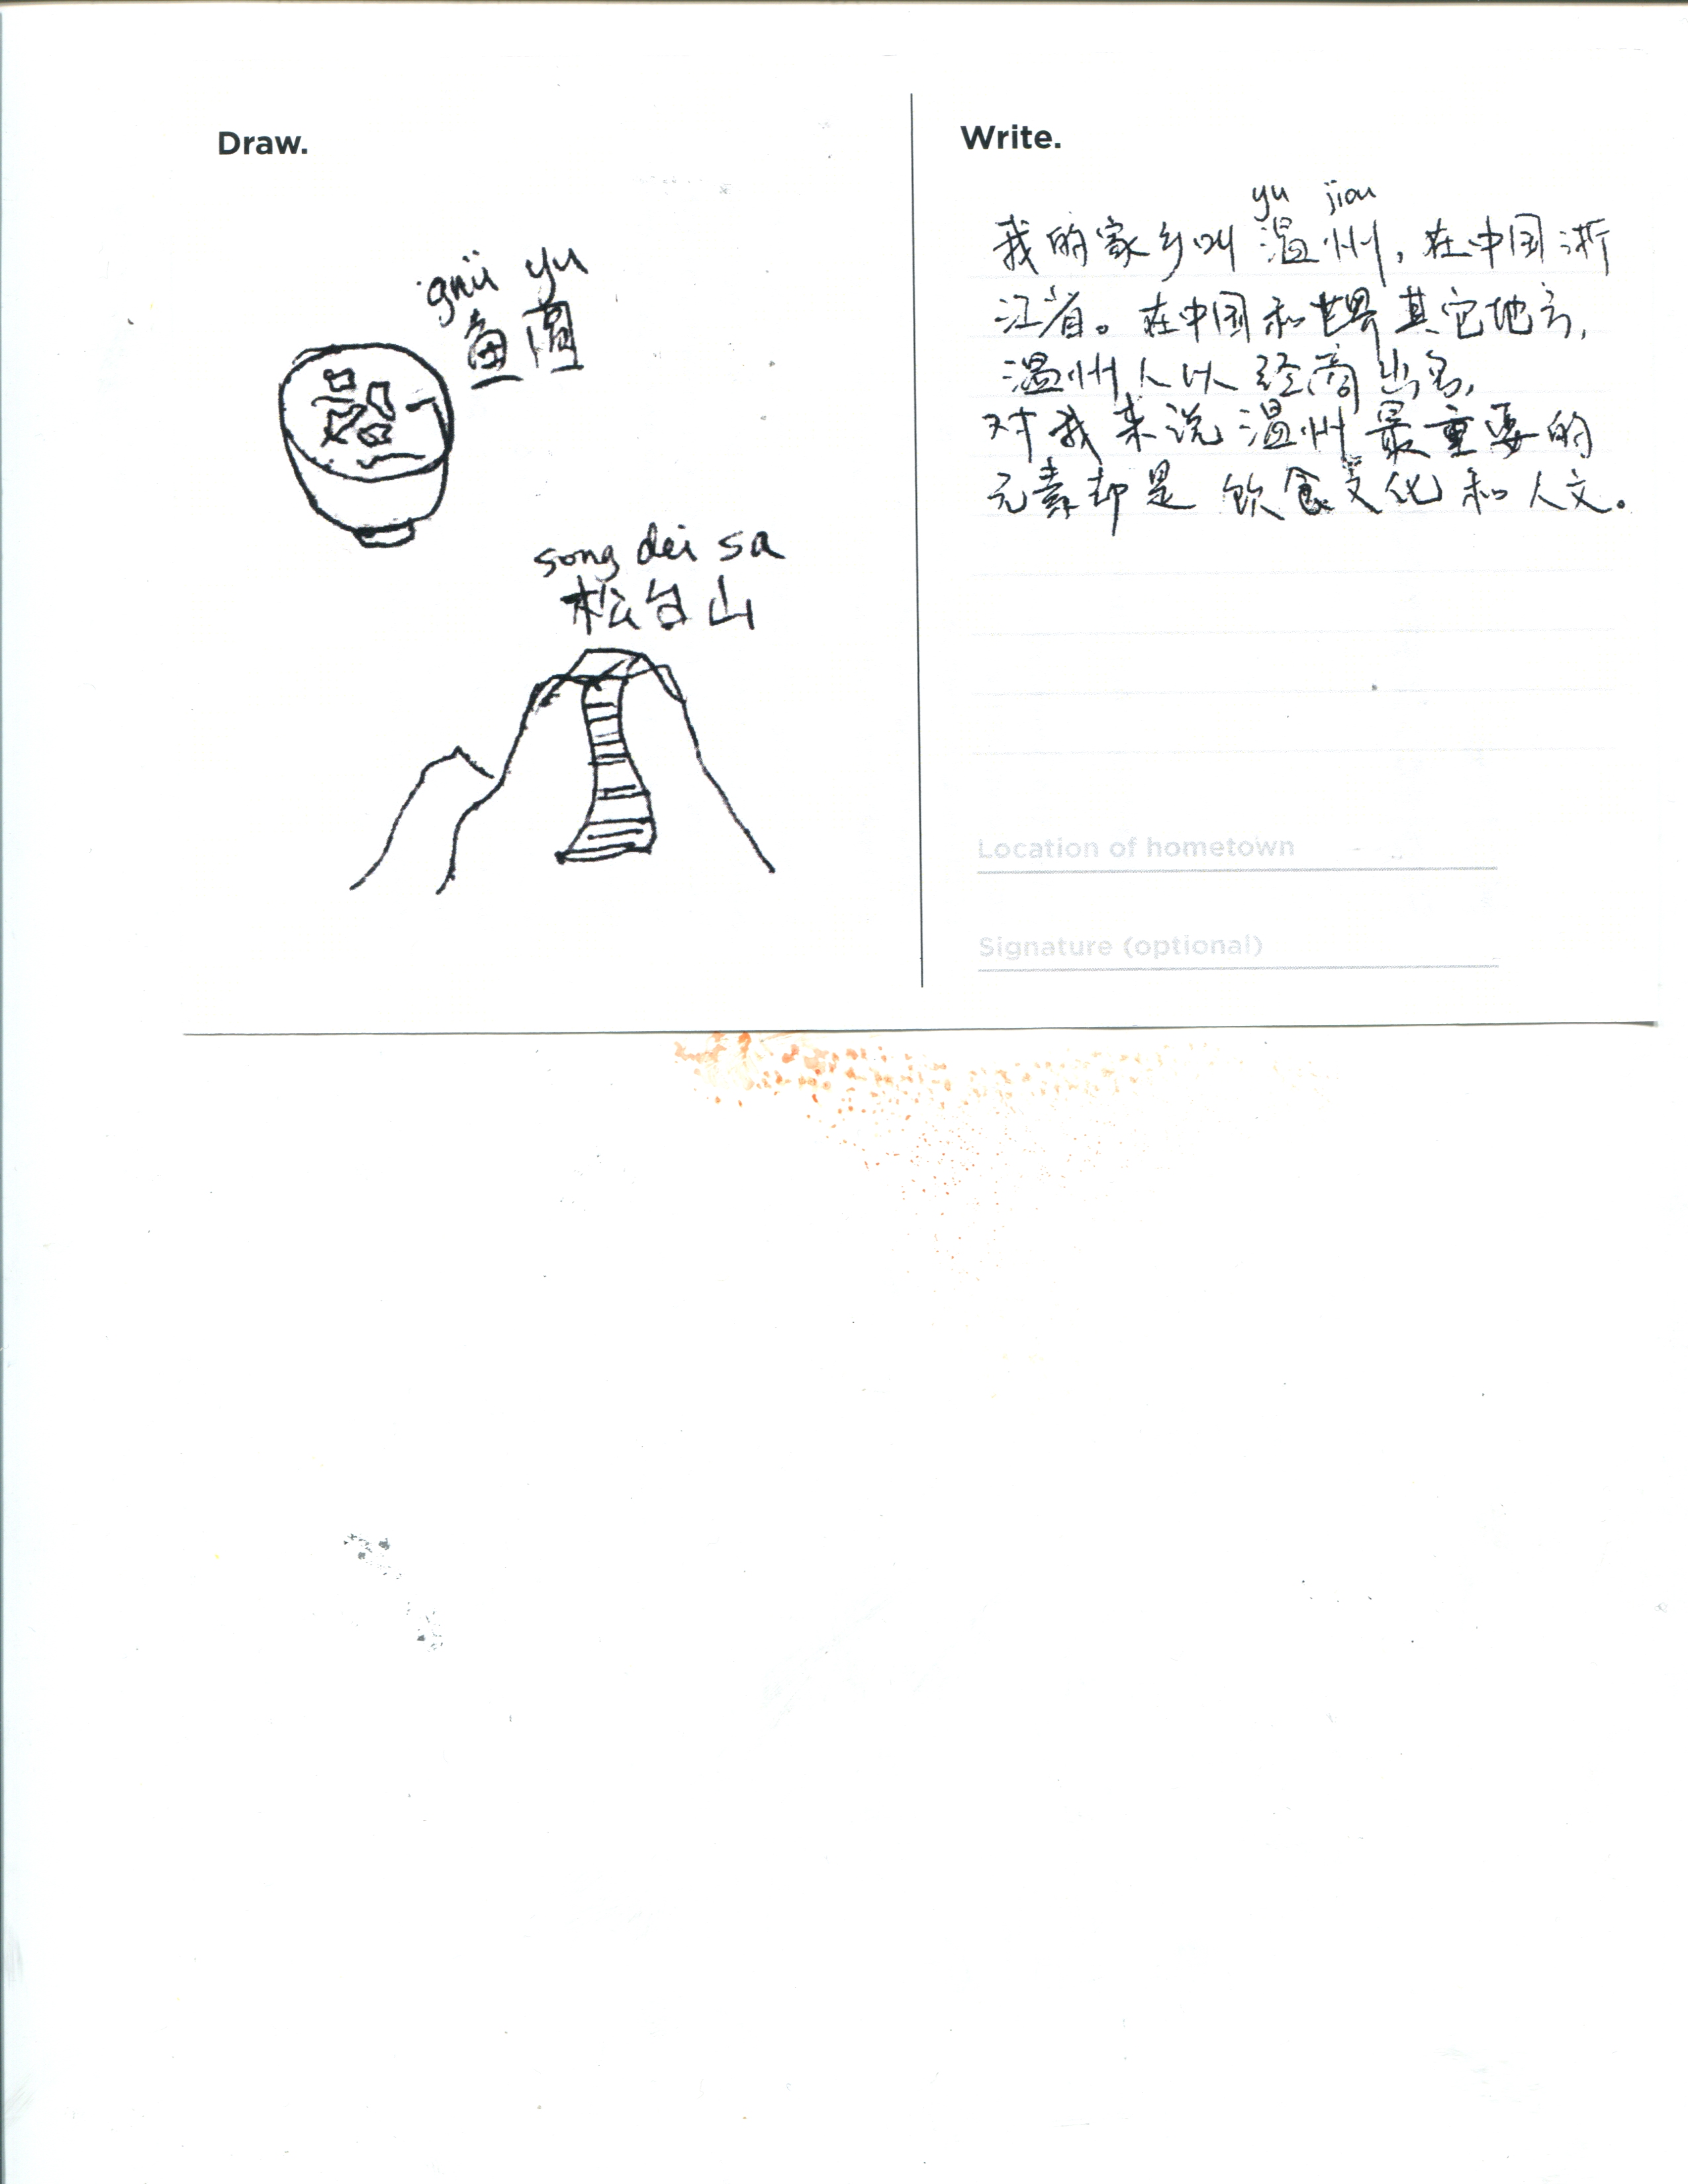 Draw.
gnü yu
鱼圆
song dei sa
松台山
Write.
yu jiou
我的家乡叫温州,在中国浙
江省。在中国和世界其它地方,
温州人以经商出名,
对我来说温州最重要的
元素却是饮食文化和人文。
Location of hometown
Signature (optional)